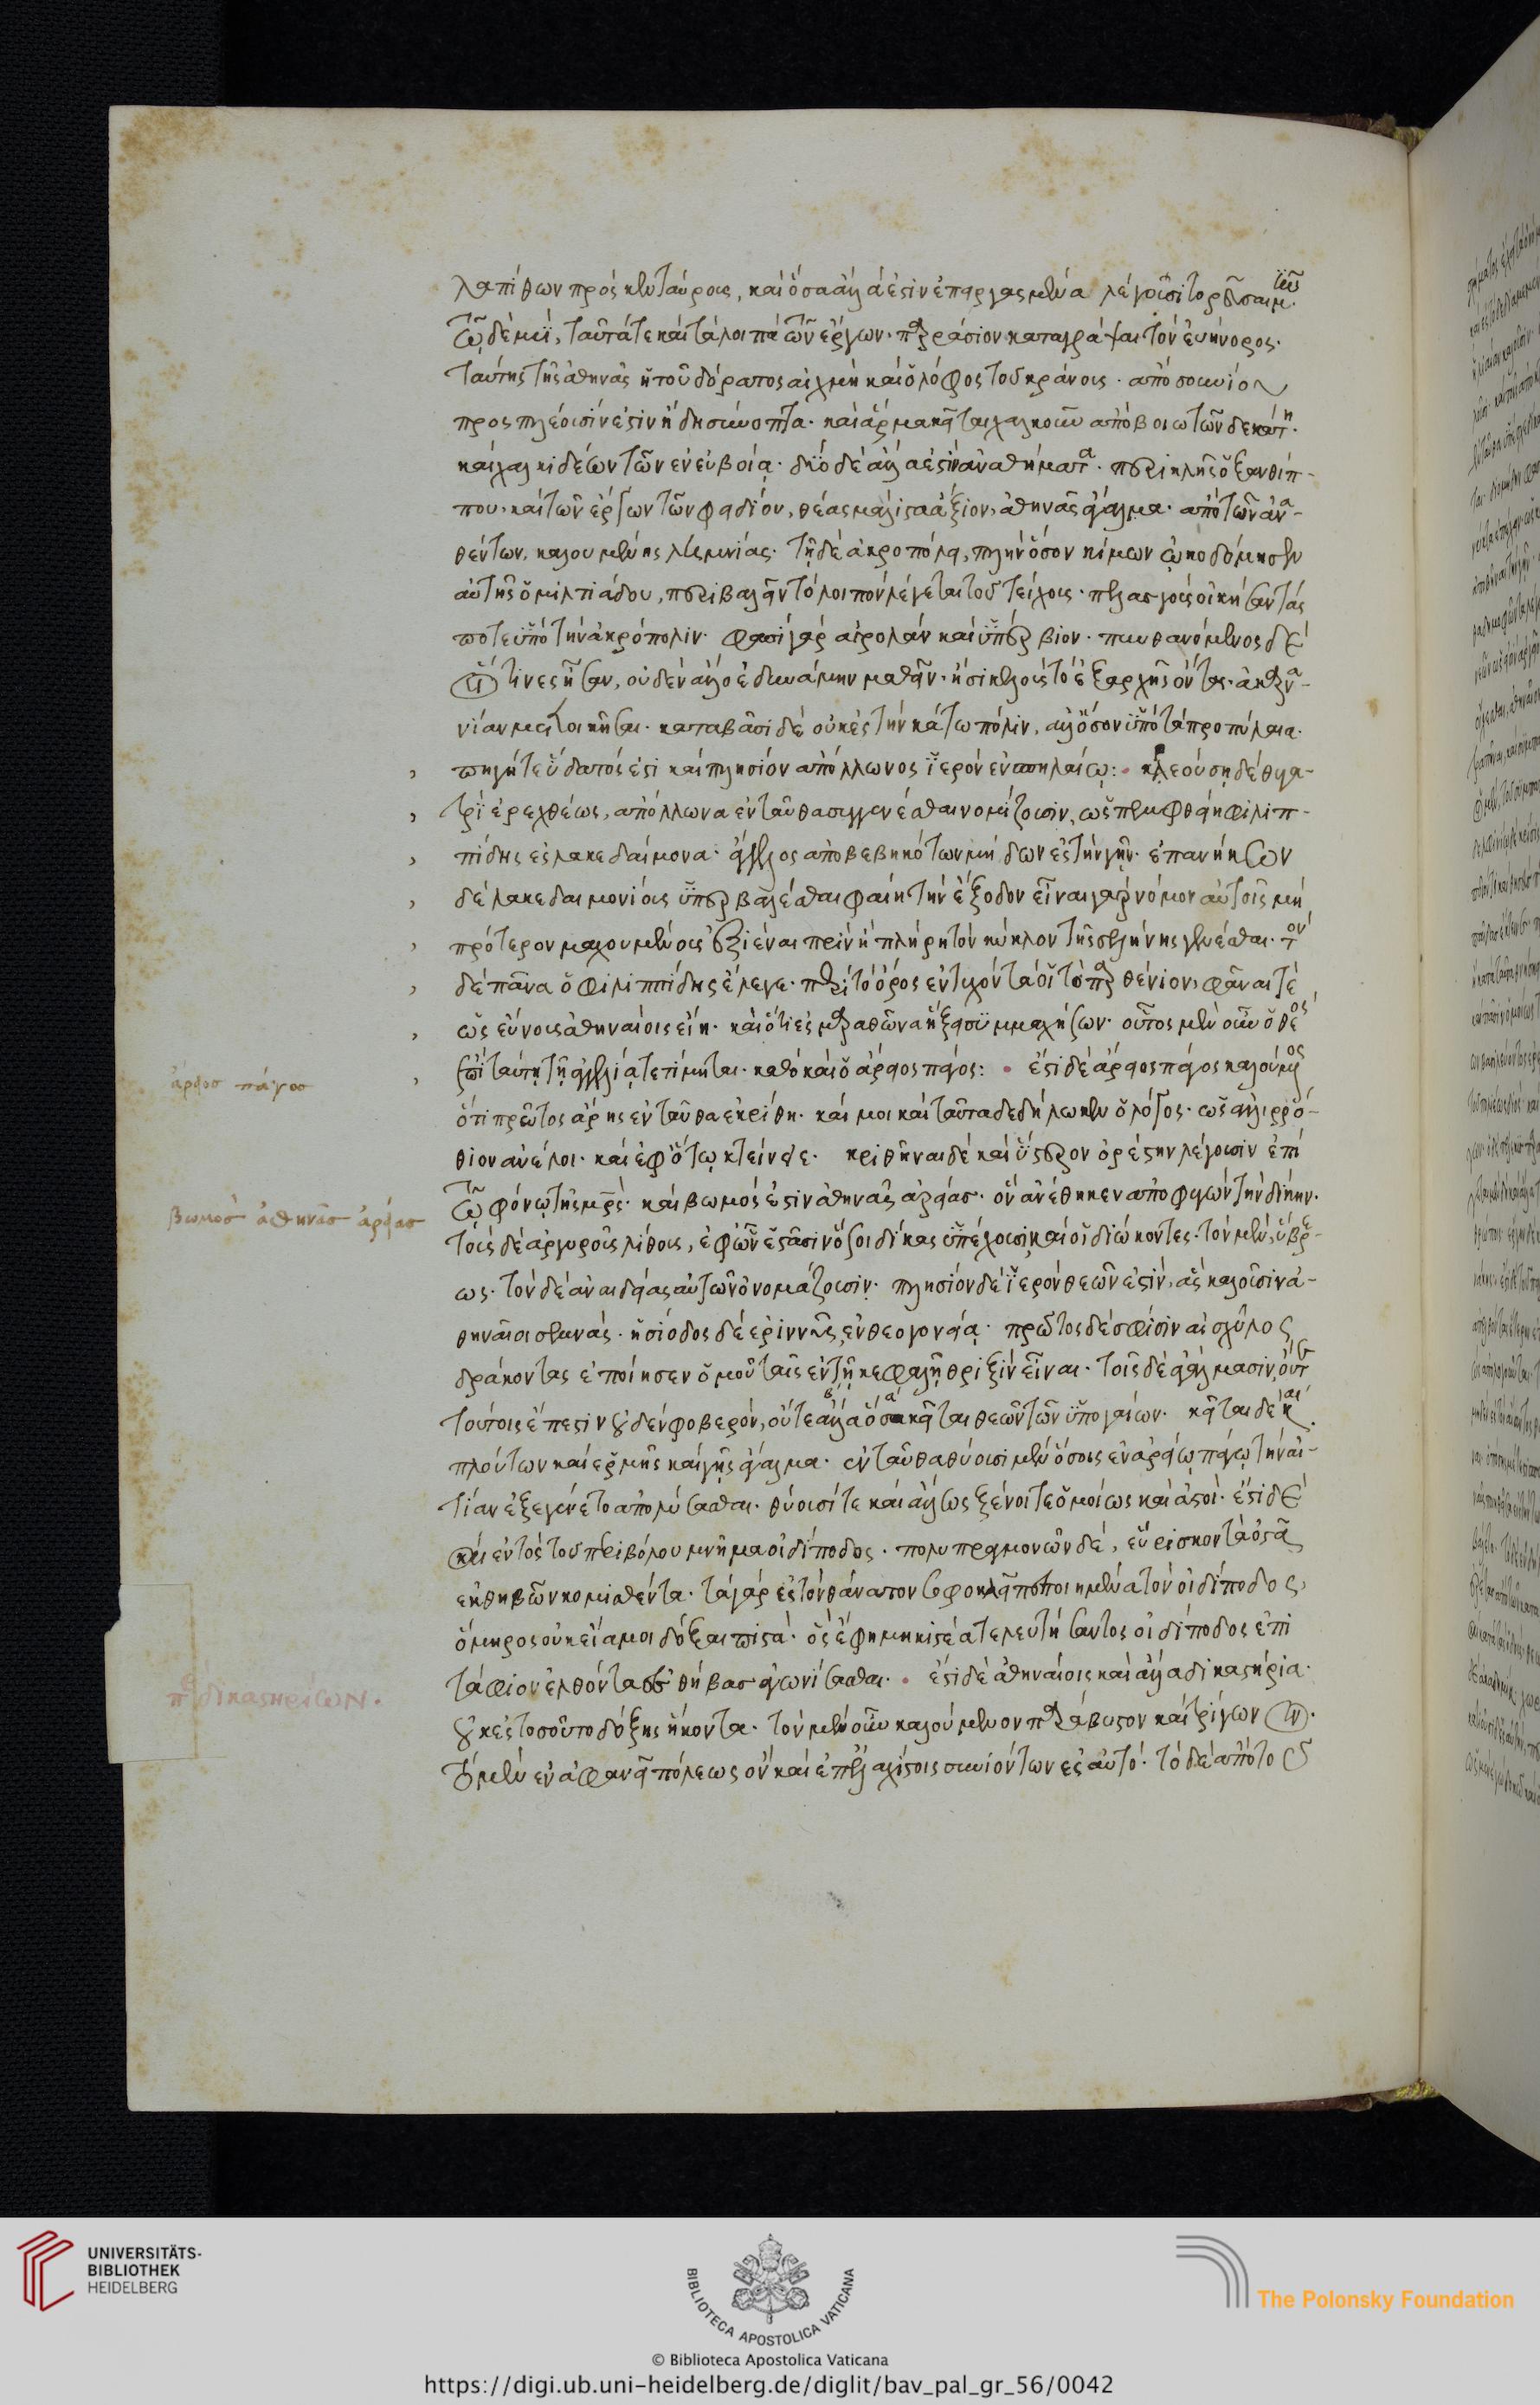 λαπίθων πρὸς κενταύρους, καὶ ὅσα ἄλλα ἐστὶν ἐπειργασμένα λέγουσι τορεῦσαι μῦν·
τῷ δὲ μυῒ, ταῦτά τε καὶ τὰ λοιπὰ τῶν ἔργων· παρράσιον καταγράψαι τὸν εὐήνορος·
ταύτης τῆς ἀθηνᾶς ἡ τοῦ δόρατος αἰχμὴ καὶ ὁ λόφος τοῦ κράνους· ἀπὸ σουνίου
προσπλέουσίν ἐστιν ἤδη σύνοπτα· καὶ ἅρμα κεῖται χαλκοῦν ἀπὸ βοιωτῶν δεκάτη·
καὶ χαλκιδέων τῶν ἐν εὐβοίᾳ· δύο δὲ ἄλλα ἐστὶν ἀναθήματα· περικλῆς ὁ ξανθίπ-
που, καὶ τῶν ἔργων τῶν φειδίου, θέας μάλιστα ἄξιον, ἀθηνᾶς ἄγαλμα· ἀπὸ τῶν ἀνα-
θέντων, καλουμένης λημνίας· τῇ δὲ ἀκροπόλει, πλὴν ὅσον κίμων ᾠκοδόμησεν
αὐτῆς ὁ μιλτιάδου, περιβαλεῖν τὸ λοιπὸν λέγεται τοῦ τείχους· πελασγοὺς οἰκήσαντάς
ποτε ὑπὸ τὴν ἀκρόπολιν· φασὶ γὰρ ἀγρόλαν καὶ ὑπέρβιον· πυνθανόμενος δὲ
οἵτινες ἦσαν, οὐδὲν ἄλλο ἐδυνάμην μαθεῖν· ἢ σικελοὺς τὸ ἐξ ἀρχῆς ὄντας ἀκαρνα-
νίαν μετοικῆσαι· καταβᾶσι δὲ οὐκ ἐς τὴν κάτω πόλιν, ἀλλ' ὅσον ὑπὸ τὰ προπύλαια·
πηγή τε ὕδατός ἐστι καὶ πλησίον ἀπόλλωνος ἱερὸν ἐν σπηλαίῳ: κρεούσῃ δὲ θυγα-
τρὶ ἐρεχθέως, ἀπόλλωνα ἐνταῦθα συγγενέσθαι νομίζουσιν, ὡς πεμφθείη φιλιπ-
πίδης ἐς λακεδαίμονα· ἄγγελος ἀποβεβηκότων μήδων ἐς τὴν γῆν· ἐπανήκων
δὲ λακεδαιμονίους ὑπερβαλέσθαι φαίη τὴν ἔξοδον εἶναι γὰρ νόμον αὐτοῖς μὴ
πρότερον μαχουμένους ἐξιέναι πρὶν ἢ πλήρη τὸν κύκλον τῆς σελήνης γενέσθαι· τὸν
δὲ πᾶνα ὁ φιλιππίδης ἔλεγε· περὶ τὸ ὄρος ἐντυχόντα οἱ τὸ παρθένιον, φάναι τε
ὡς εὔνους ἀθηναίοις εἴη· καὶ ὅτι ἐς μαραθῶνα ἥξει συμμαχήσων· οὗτος μὲν οὖν ὁ θεὸς
ἐπὶ ταύτῃ τῇ ἀγγελίᾳ τετίμηται· καθὸ καὶ ὁ ἄρειος πάγος: ἔστι δὲ ἄρειος πάγος καλούμενος
ὅτι πρῶτος ἄρης ἐνταῦθα ἐκρίθη· καί μοι καὶ ταῦτα δεδήλωκεν ὁ λόγος· ὡς ἁλιρρό-
θιον ἀνέλοι· καὶ ἐφ' ὅτῳ κτείνειε· κριθῆναι δὲ καὶ ὕστερον ὀρέστην λέγουσιν ἐπὶ
τῷ φόνῳ τῆς μητρός· καὶ βωμός ἐστιν ἀθηνᾶς ἀρείας· ὃν ἀνέθηκεν ἀποφυγὼν τὴν δίκην·
τοὺς δὲ ἀργυροῦς λίθους, ἐφ' ὧν ἑστᾶσιν ὅσοι δίκας ὑπέχουσι, καὶ οἱ διώκοντες· τὸν μὲν, ὕβρε-
ως· τὸν δὲ ἀναιδείας αὐτῶν ὀνομάζουσιν· πλησίον δὲ ἱερὸν θεῶν ἐστὶν, ἃς καλοῦσιν ἀ-
θηναῖοι σεμνάς· ἡσίοδος δὲ ἐρίννυς, ἐν θεογονείᾳ· πρῶτος δὲ σφίσιν αἰσχύλος
δράκοντας ἐποίησεν ὁμοῦ ταῖς ἐν τῇ κεφαλῇ θριξὶν εἶναι· τοῖς δὲ ἀγάλμασιν, οὔτε
τούτοις ἔπεστιν οὐδὲν φοβερὸν, οὔτε ἄλλα ὅσα κεῖται θεῶν τῶν ὑπογαίων· κεῖται δὲ καὶ
πλούτων καὶ ἑρμῆς καὶ γῆς ἄγαλμα· ἐνταῦθα θύουσι μὲν ὅσοις ἐν ἀρείῳ πάγῳ τὴν αἰ-
τίαν ἐξεγένετο ἀπολύσασθαι· θύουσί τε καὶ ἄλλως ξένοι τε ὁμοίως καὶ ἀστοί· ἔστι δὲ
καὶ ἐντὸς τοῦ περιβόλου μνῆμα οἰδίποδος· πολυπραγμονῶν δὲ, εὕρισκον τὰ ὀστᾶ
ἐκ θηβῶν κομισθέντα· τὰ γὰρ ἐς τὸν θάνατον σοφοκλεῖ πεποιημένα τὸν οἰδίποδος,
ὅμηρος οὐκ εἴα μοι δόξαι πιστά· ὃς ἔφη μηκιστέα τελευτήσαντος οἰδίποδος ἐπὶ
τάφιον ἐλθόντα ἐς θήβας ἀγωνίσασθαι· ἔστι δὲ ἀθηναίοις καὶ ἄλλα δικαστήρια·
οὐκ ἐς τοσοῦτο δόξης ἥκοντα· τὸν μὲν οὖν καλούμενον παράβυστον καὶ τρίγωνον·
τὸ μὲν ἐν ἀφανεῖ πόλεως ὂν καὶ ἐπ' ἐλαχίστοις συνιόντων ἐς αὐτό· τὸ δὲ ἀπὸ τοῦ
ἄρειος πάγος
βωμὸς ἀθηνᾶς ἀρείας
περὶ δικαστηρίων.
UNIVERSITÄTS-
BIBLIOTHEK
HEIDELBERG
BIBLIOTECA APOSTOLICA VATICANA
The Polonsky Foundation
© Biblioteca Apostolica Vaticana
https://digi.ub.uni-heidelberg.de/diglit/bav_pal_gr_56/0042